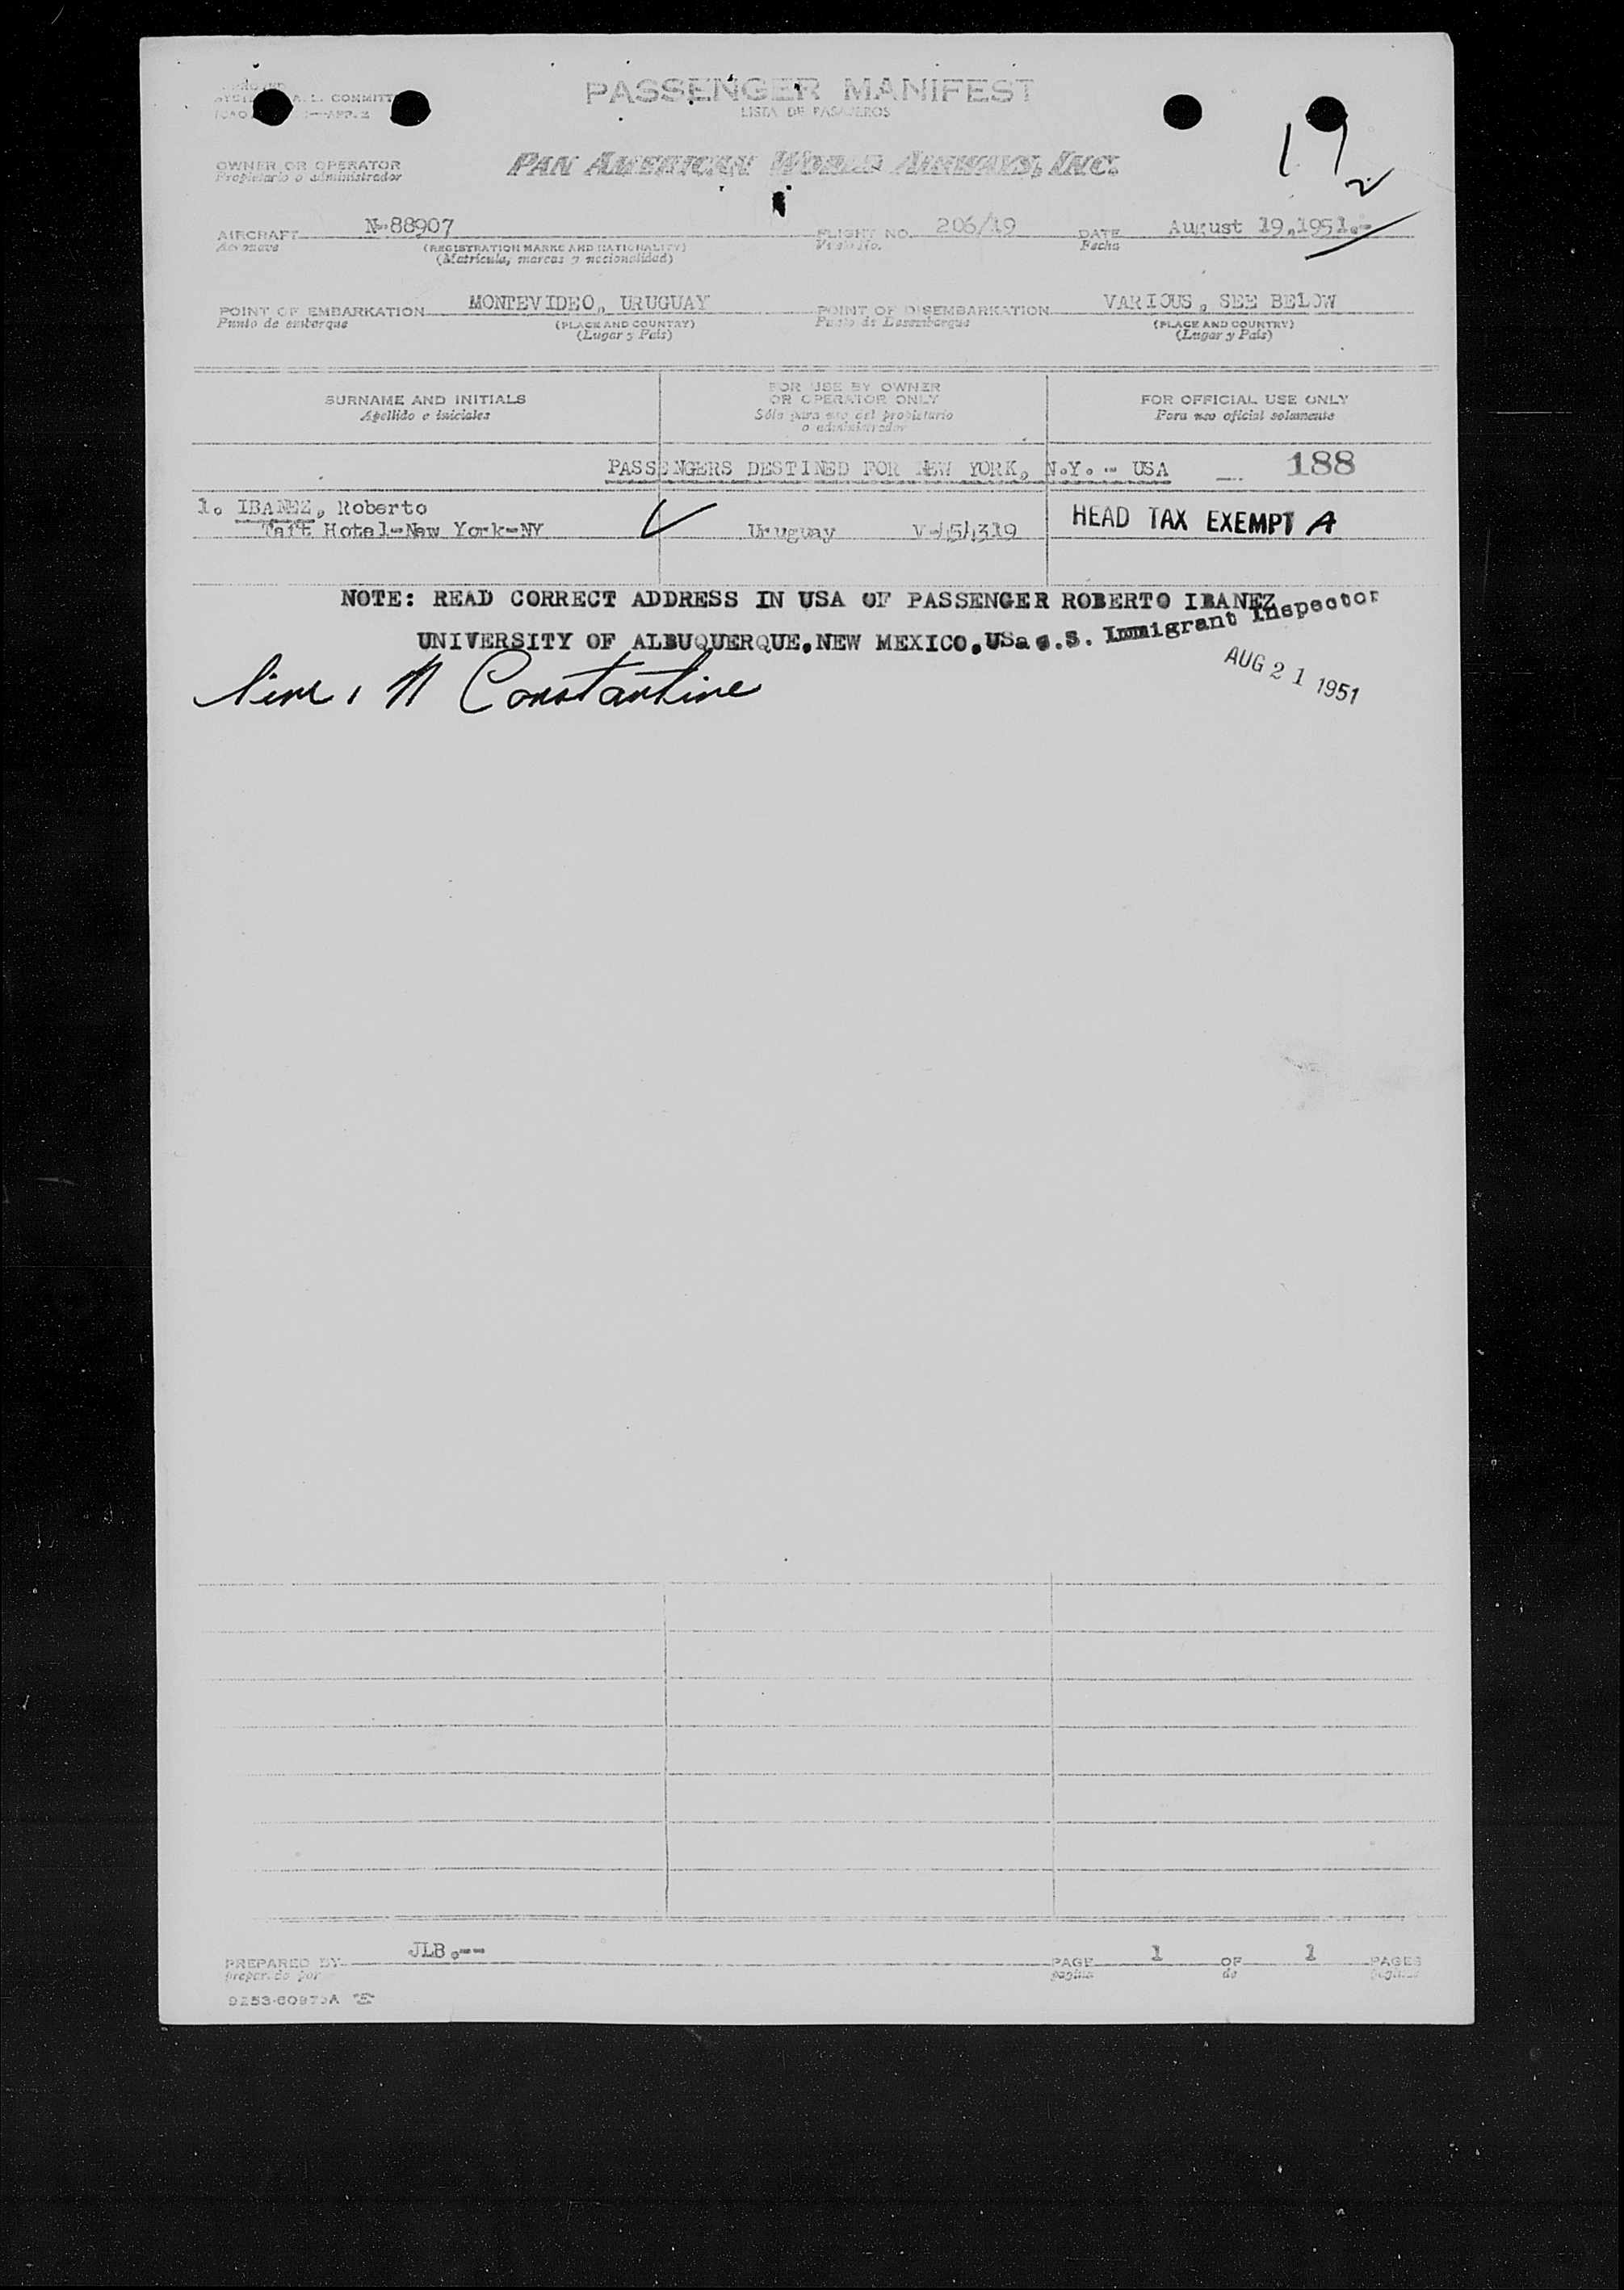 PASSENGER MANIFEST
LISTA DE PASAJEROS
COMMITT
OWNER OR OPERATOR
Propietario o administrador
PAN AMERICAN WORLD AIRWAYS, INC.
17
2
AIRCRAFT N-88907 FLIGHT NO. 206/19 DATE August 19,1951.-
Aeronave (REGISTRATION MARKS AND NATIONALITY) Vuelo No. Fecha
(Matrícula, marcas y nacionalidad)
POINT OF EMBARKATION MONTEVIDEO, URUGUAY POINT OF DISEMBARKATION VARIOUS, SEE BELOW
Punto de embarque (PLACE AND COUNTRY) Punto de Desembarque (PLACE AND COUNTRY)
(Lugar y País) (Lugar y País)
SURNAME AND INITIALS
Apellido e iniciales
FOR USE BY OWNER
OR OPERATOR ONLY
Sólo para uso del propietario
o administrador
FOR OFFICIAL USE ONLY
Para uso oficial solamente
PASSENGERS DESTINED FOR NEW YORK, N.Y. - USA 188
1. IBANEZ, Roberto
Taft Hotel-New York-NY Uruguay V-454319 HEAD TAX EXEMPT A
NOTE: READ CORRECT ADDRESS IN USA OF PASSENGER ROBERTO IBANEZ
UNIVERSITY OF ALBUQUERQUE.NEW MEXICO.USa
.S. Immigrant Inspector
AUG 21 1951
N Constantine
PREPARED BY JLB.-- PAGE 1 OF 1 PAGES
preparado por página de páginas